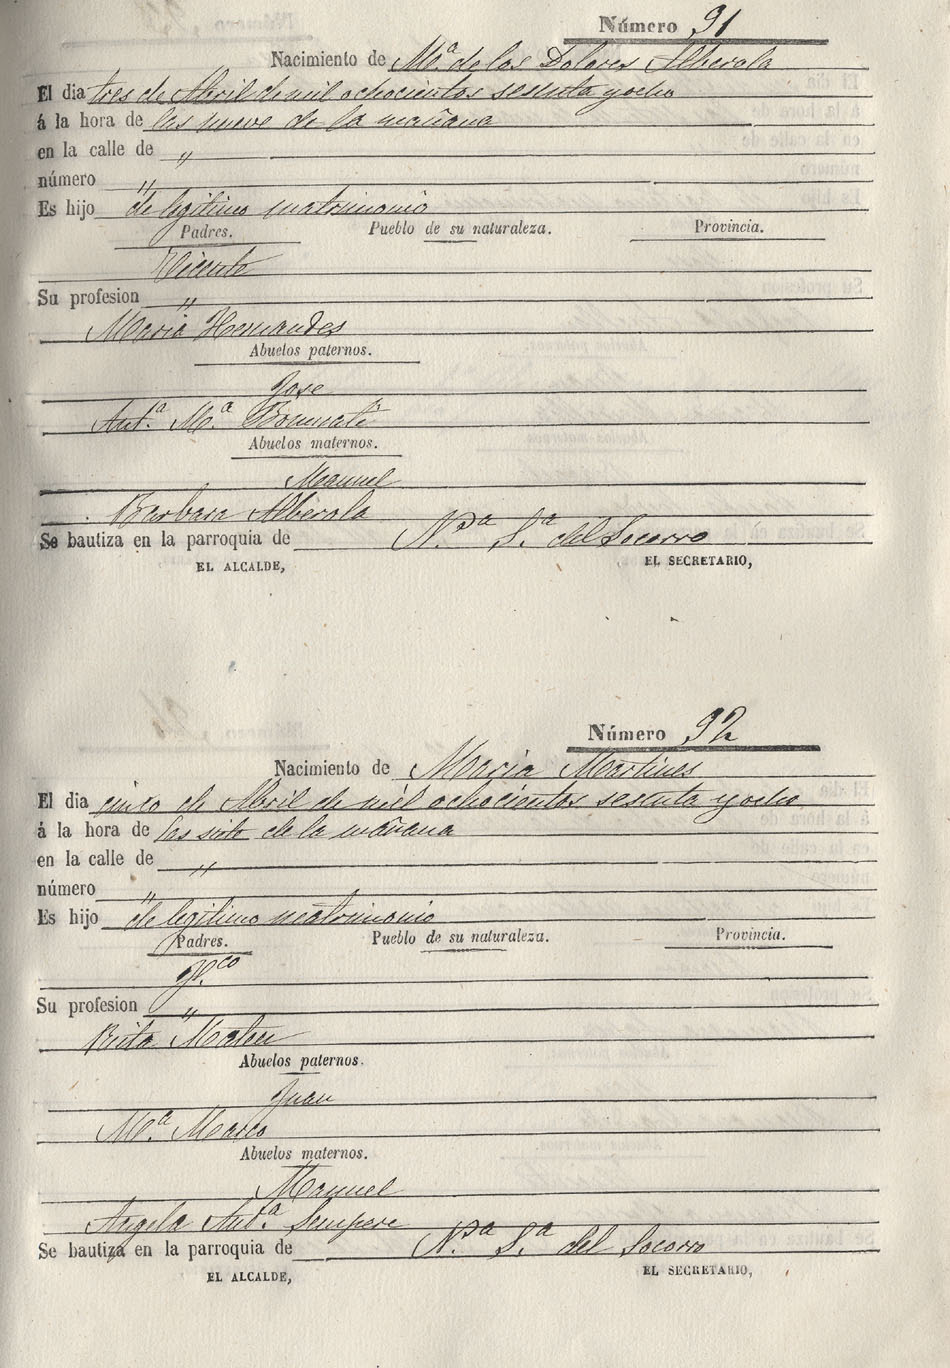 Número 91
Nacimiento de Mª de los Dolores Alberola
El dia tres de Abril de mil ochocientos sesenta y ocho
á la hora de las nueve de la mañana
en la calle de "
número "
Es hijo de legitimo matrimonio
Padres. Pueblo de su naturaleza. Provincia.
Vicente
Su profesion "
Maria Hernandes
Abuelos paternos.
Jose
Antª Mª
Abuelos maternos.
Manuel
Barbara Alberola
Se bautiza en la parroquia de Nª Sª del Socorro
EL ALCALDE, EL SECRETARIO,
Número 92
Nacimiento de Maria Martines
El dia cinco de Abril de mil ochocientos sesenta y ocho
á la hora de las siete de la mañana
en la calle de "
número "
Es hijo de legitimo matrimonio
Padres. Pueblo de su naturaleza. Provincia.
Fco
Su profesion "
Rita
Abuelos paternos.
Juan
Mª Marco
Abuelos maternos.
Manuel
Angela Antª Sempere
Se bautiza en la parroquia de Nª Sª del Socorro
EL ALCALDE, EL SECRETARIO,